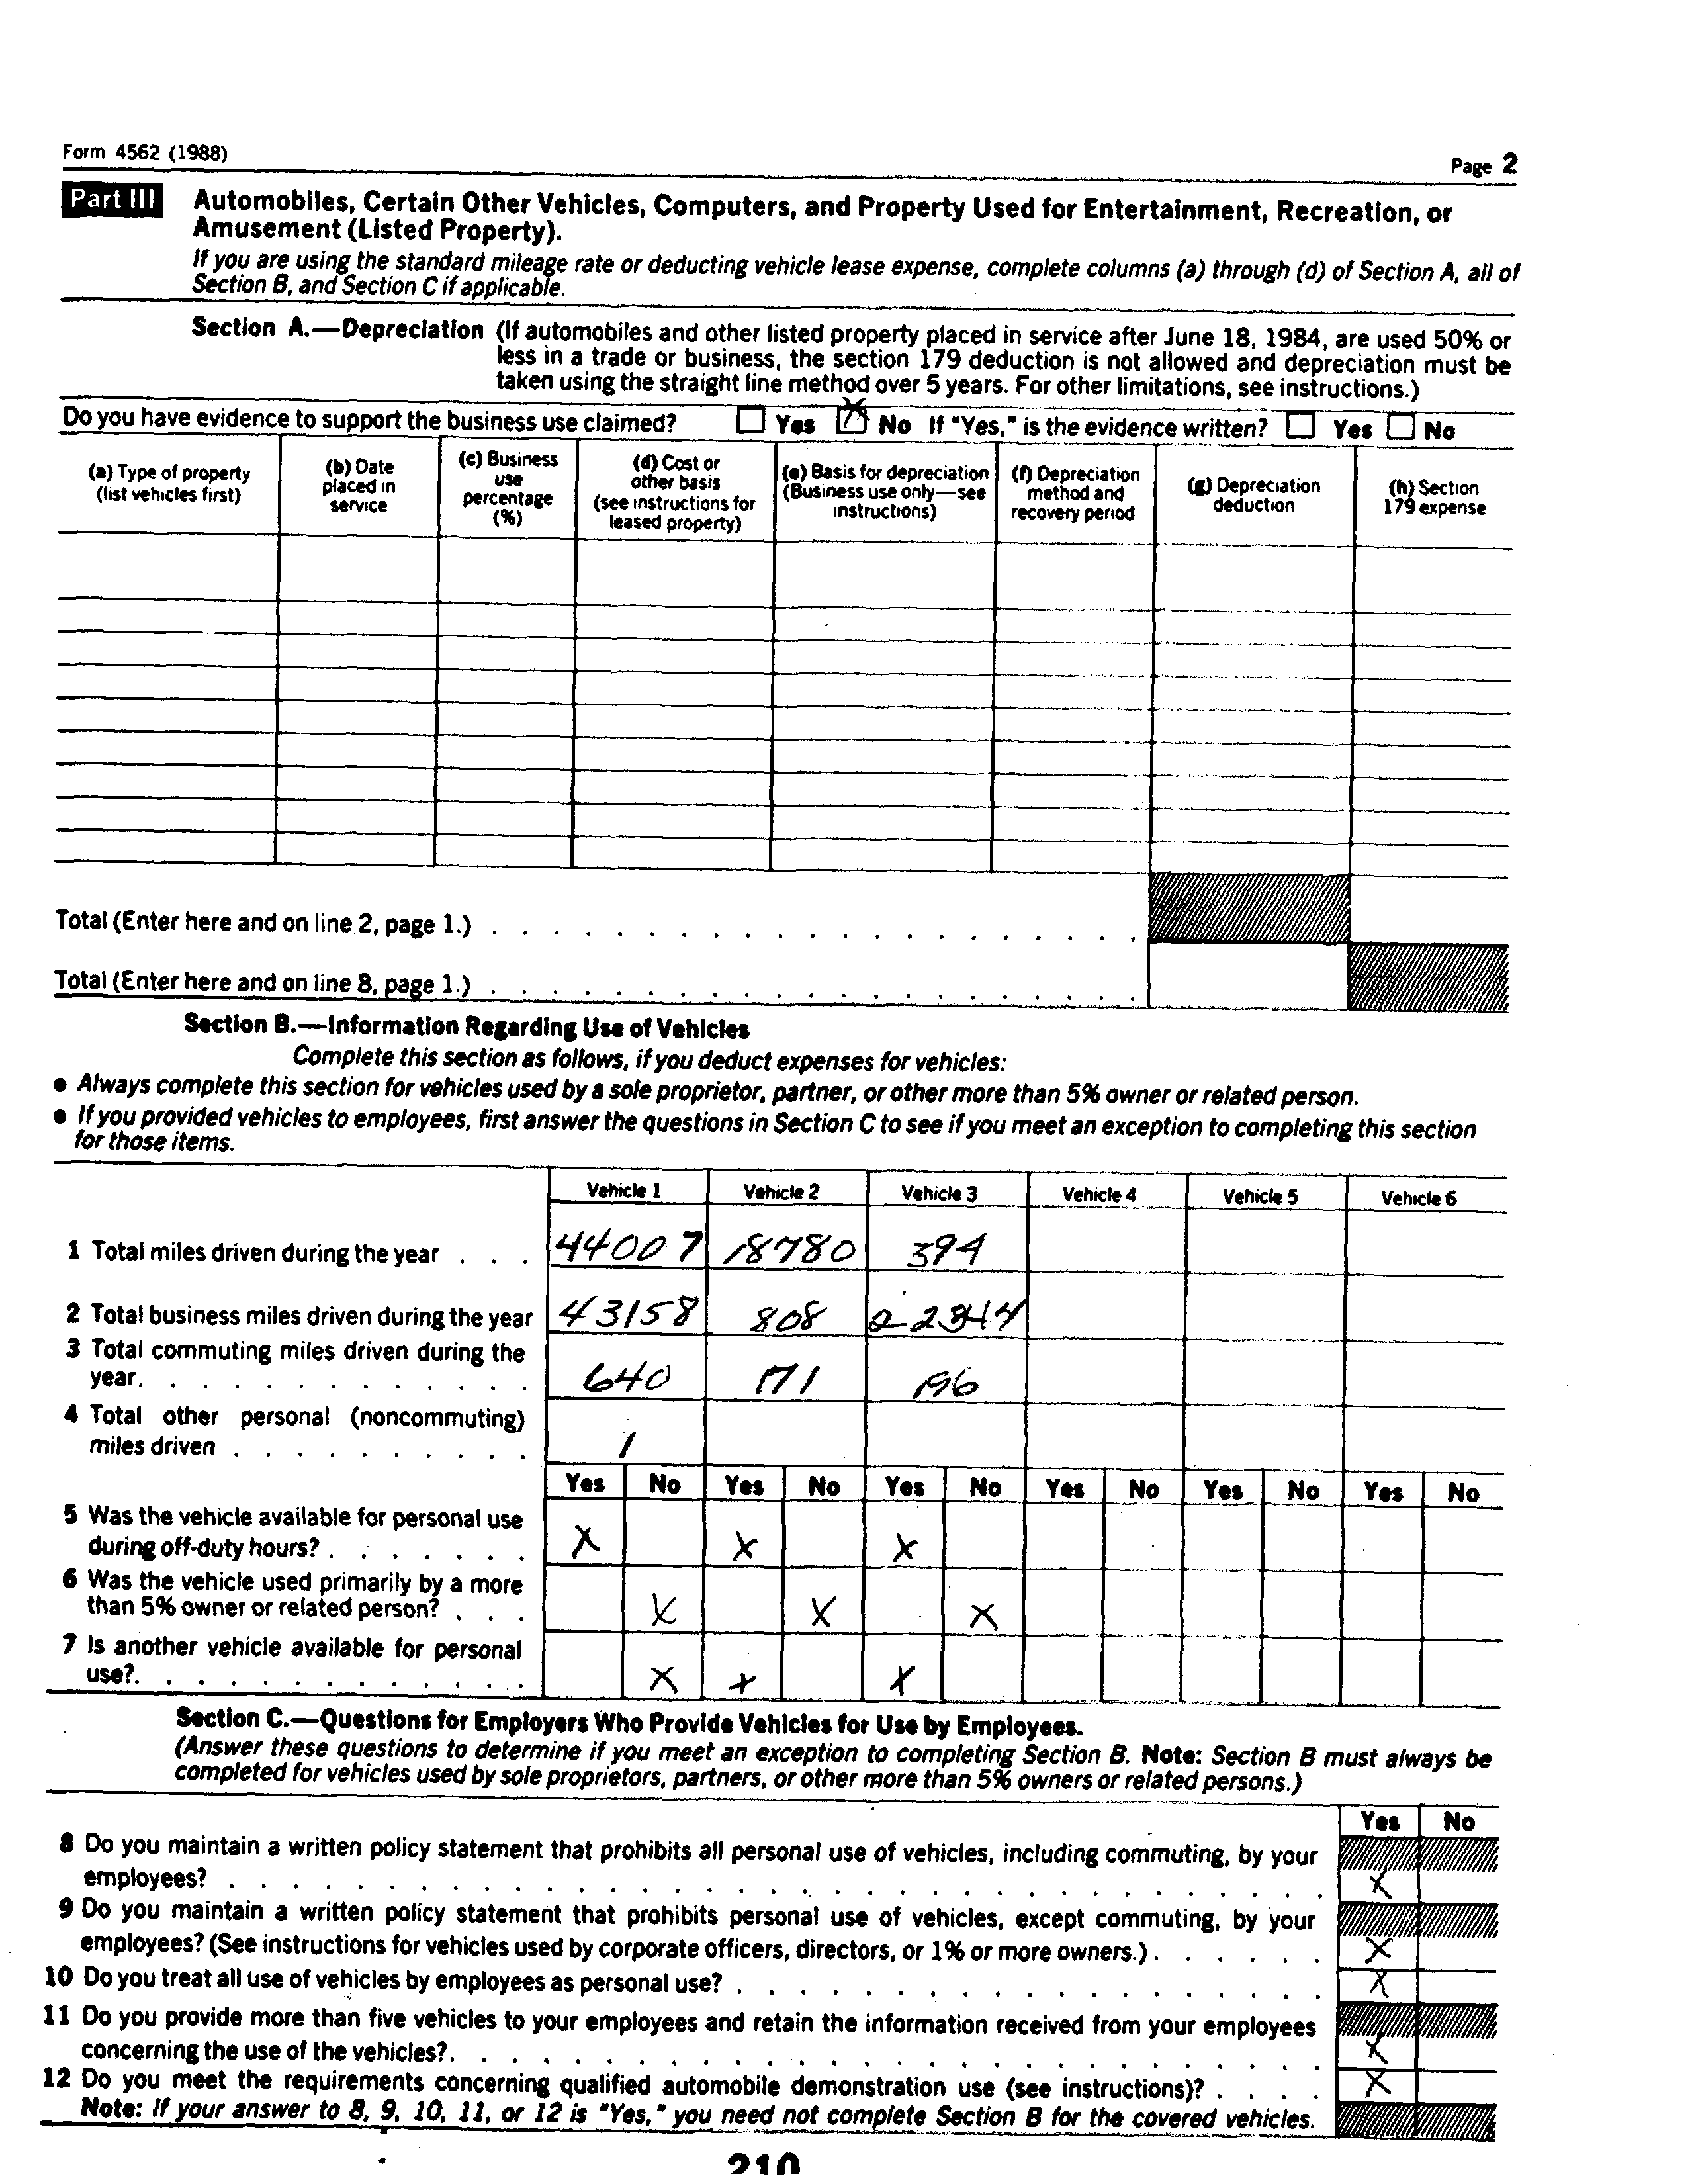 Form 4562 (1988)
Page 2
Part III
Automobiles, Certain Other Vehicles, Computers, and Property Used for Entertainment, Recreation, or
Amusement (Listed Property).
If you are using the standard mileage rate or deducting vehicle lease expense, complete columns (a) through (d) of Section A, all of
Section B, and Section C if applicable.
Section A.—Depreciation (If automobiles and other listed property placed in service after June 18, 1984, are used 50% or
less in a trade or business, the section 179 deduction is not allowed and depreciation must be
taken using the straight line method over 5 years. For other limitations, see instructions.)
Do you have evidence to support the business use claimed? Yes X No If "Yes," is the evidence written? Yes No
(a) Type of property
(list vehicles first)
(b) Date
placed in
service
(c) Business
use
percentage
(%)
(d) Cost or
other basis
(see instructions for
leased property)
(e) Basis for depreciation
(Business use only—see
instructions)
(f) Depreciation
method and
recovery period
(g) Depreciation
deduction
(h) Section
179 expense
Total (Enter here and on line 2, page 1.)
Total (Enter here and on line 8, page 1.)
Section B.—Information Regarding Use of Vehicles
Complete this section as follows, if you deduct expenses for vehicles:
● Always complete this section for vehicles used by a sole proprietor, partner, or other more than 5% owner or related person.
● If you provided vehicles to employees, first answer the questions in Section C to see if you meet an exception to completing this section
for those items.
Vehicle 1 Vehicle 2 Vehicle 3 Vehicle 4 Vehicle 5 Vehicle 6
1 Total miles driven during the year . . . 44007 18780 394
2 Total business miles driven during the year 43158 808 22344
3 Total commuting miles driven during the
year. . . . . . . . . . . . . 640 171 196
4 Total other personal (noncommuting)
miles driven . . . . . . . . . . 1
Yes No Yes No Yes No Yes No Yes No Yes No
5 Was the vehicle available for personal use
during off-duty hours? . . . . . . . X X X
6 Was the vehicle used primarily by a more
than 5% owner or related person? . . . X X X
7 Is another vehicle available for personal
use?. . . . . . . . . . . . . X X X
Section C.—Questions for Employers Who Provide Vehicles for Use by Employees.
(Answer these questions to determine if you meet an exception to completing Section B. Note: Section B must always be
completed for vehicles used by sole proprietors, partners, or other more than 5% owners or related persons.)
Yes No
8 Do you maintain a written policy statement that prohibits all personal use of vehicles, including commuting, by your
employees? X
9 Do you maintain a written policy statement that prohibits personal use of vehicles, except commuting, by your
employees? (See instructions for vehicles used by corporate officers, directors, or 1% or more owners.) . . . . . . X
10 Do you treat all use of vehicles by employees as personal use? X
11 Do you provide more than five vehicles to your employees and retain the information received from your employees
concerning the use of the vehicles?. X
12 Do you meet the requirements concerning qualified automobile demonstration use (see instructions)? . . . . X
Note: If your answer to 8, 9, 10, 11, or 12 is "Yes," you need not complete Section B for the covered vehicles.
210